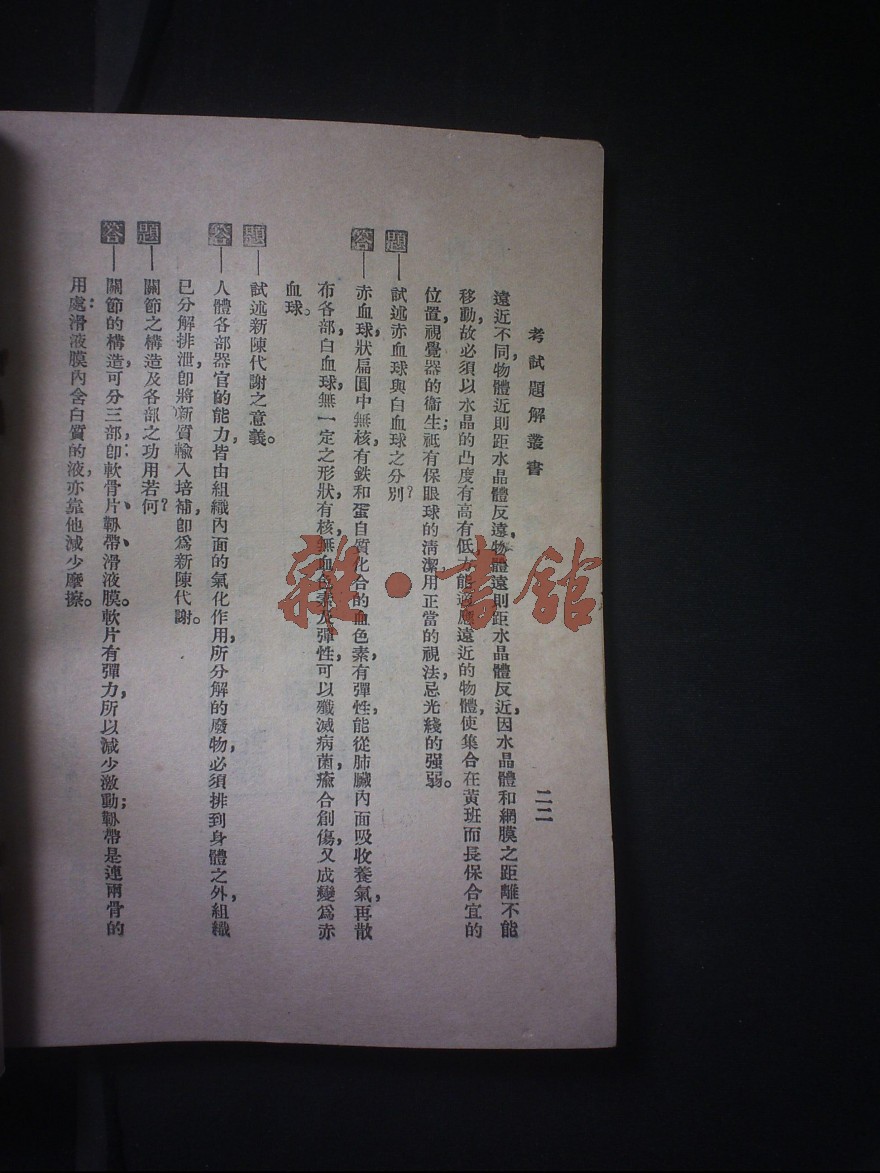 考試題解叢書
二二
遠近不同,物體近則距水晶體反遠,物體遠則距水晶體反近,因水晶體和網膜之距離不能
移動,故必須以水晶的凸度有高有低,才能適應遠近的物體,使集合在黃斑而長保合宜的
位置,視覺器的衞生;祗有保眼球的清潔用正當的視法,忌光綫的强弱。
題—試述赤血球與白血球之分別?
答—赤血球狀扁圓中無核,有鉄和蛋白質化合的血色素,有彈性,能從肺臟內面吸收養氣,再散
布各部,白血球,無一定之形狀,有核,無血色素及彈性,可以殲滅病菌,瘉合創傷,又成變爲赤
血球。
題—試述新陳代謝之意義。
答—人體各部器官的能力,皆由組織內面的氧化作用,所分解的廢物,必須排到身體之外,組織
已分解排泄,卽將新質輸入培補,卽爲新陳代謝。
題—關節之構造及各部之功用若何?
答—關節的構造,可分三部,卽:軟骨片、靱帶、滑液膜。軟片有彈力,所以減少激動;靱帶是連兩骨的
用處:滑液膜內含白質的液,亦靠他減少摩擦。
雜·書館